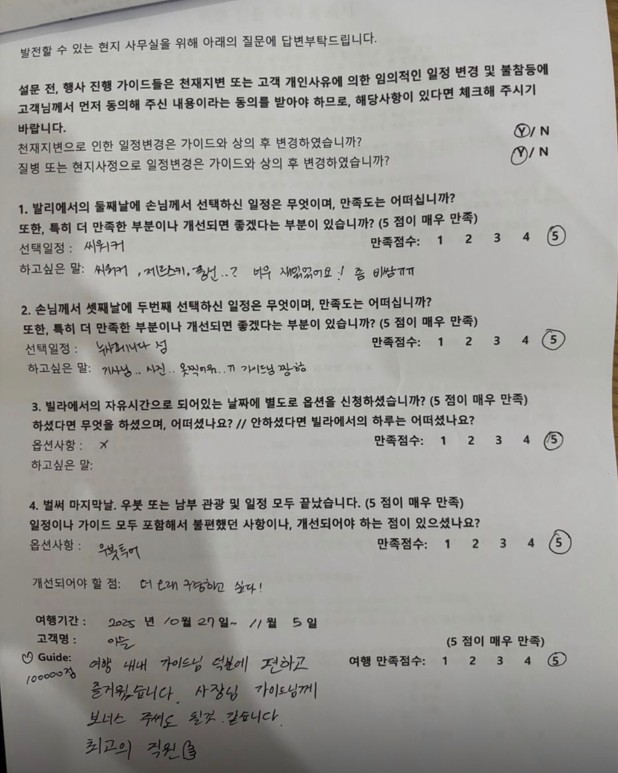 발전할 수 있는 현지 사무실을 위해 아래의 질문에 답변부탁드립니다.
설문 전, 행사 진행 가이드들은 천재지변 또는 고객 개인사유에 의한 임의적인 일정 변경 및 불참등에
고객님께서 먼저 동의해 주신 내용이라는 동의를 받아야 하므로, 해당사항이 있다면 체크해 주시기
바랍니다.
천재지변으로 인한 일정변경은 가이드와 상의 후 변경하였습니까? Y/ N
질병 또는 현지사정으로 일정변경은 가이드와 상의 후 변경하였습니까? Y/ N
1. 발리에서의 둘째날에 손님께서 선택하신 일정은 무엇이며, 만족도는 어떠십니까?
또한, 특히 더 만족한 부분이나 개선되면 좋겠다는 부분이 있습니까? (5 점이 매우 만족)
선택일정 : 씨워커 만족점수: 1 2 3 4 5
하고싶은 말: 씨워커, 제트스키, ..? 너무 재밌었어요! 좀 비쌈ㅠㅠ
2. 손님께서 셋째날에 두번째 선택하신 일정은 무엇이며, 만족도는 어떠십니까?
또한, 특히 더 만족한 부분이나 개선되면 좋겠다는 부분이 있습니까? (5 점이 매우 만족)
선택일정 : 누사페니다 섬 만족점수: 1 2 3 4 5
하고싶은 말: 기사님.. 사진.. ㅠ 가이드님 짱
3. 빌라에서의 자유시간으로 되어있는 날짜에 별도로 옵션을 신청하셨습니까? (5 점이 매우 만족)
하셨다면 무엇을 하셨으며, 어떠셨나요? // 안하셨다면 빌라에서의 하루는 어떠셨나요?
옵션사항 : X 만족점수: 1 2 3 4 5
하고싶은 말:
4. 벌써 마지막날. 우붓 또는 남부 관광 및 일정 모두 끝났습니다. (5 점이 매우 만족)
일정이나 가이드 모두 포함해서 불편했던 사항이나, 개선되어야 하는 점이 있으셨나요?
옵션사항 : 우붓투어 만족점수: 1 2 3 4 5
개선되어야 할 점: 더 오래 구경하고 싶다!
여행기간 : 2025 년 10월 27일~ 11월 5일
고객명 : (5 점이 매우 만족)
♡ Guide: 여행 내내 가이드님 덕분에 편하고 여행 만족점수: 1 2 3 4 5
100000점
즐거웠습니다. 사장님 가이드님께
보너스 주셔도 될것 같습니다.
최고의 직원